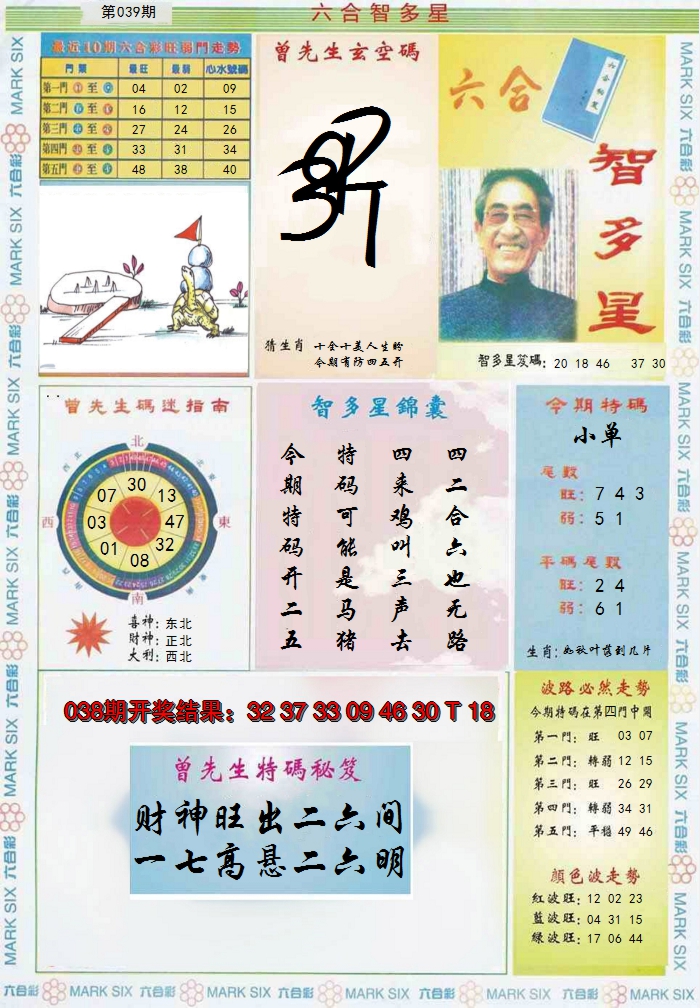 第039期
六合智多星
最近10期六合彩旺弱門走勢
門類 最旺 最弱 心水號碼
第一門 至 04 02 09
第二門 至 16 12 15
第三門 至 27 24 26
第四門 至 33 31 34
第五門 至 48 38 40
曾先生玄空碼
猜生肖 十全十美人生盼
今期有防四五开
六合
智多星
智多星笈碼: 20 18 46 37 30
曾先生碼迷指南
北
西
東
南
07 30 13
03 47
01 08 32
喜神: 东北
財神: 正北
大利: 西北
智多星錦囊
四二合六也无路
四来鸡叫三声去
特码可能是马猪
今期特码开二五
今期特碼
小单
尾數
旺: 7 4 3
弱: 5 1
平碼尾數
旺: 2 4
弱: 6 1
生肖: 如秋叶落到几片
038期开奖结果: 32 37 33 09 46 30 T 18
曾先生特碼秘笈
财神旺出二六间
一七高悬二六明
波路必然走勢
今期特碼在第四門中開
第一門: 旺 03 07
第二門: 轉弱 12 15
第三門: 旺 26 29
第四門: 轉弱 34 31
第五門: 平穩 49 46
顏色波走勢
紅波旺: 12 02 23
藍波旺: 04 31 15
綠波旺: 17 06 44
MARK SIX 六合彩 MARK SIX 六合彩 MARK SIX 六合彩 MARK SIX 六合彩 MARK SIX 六合彩